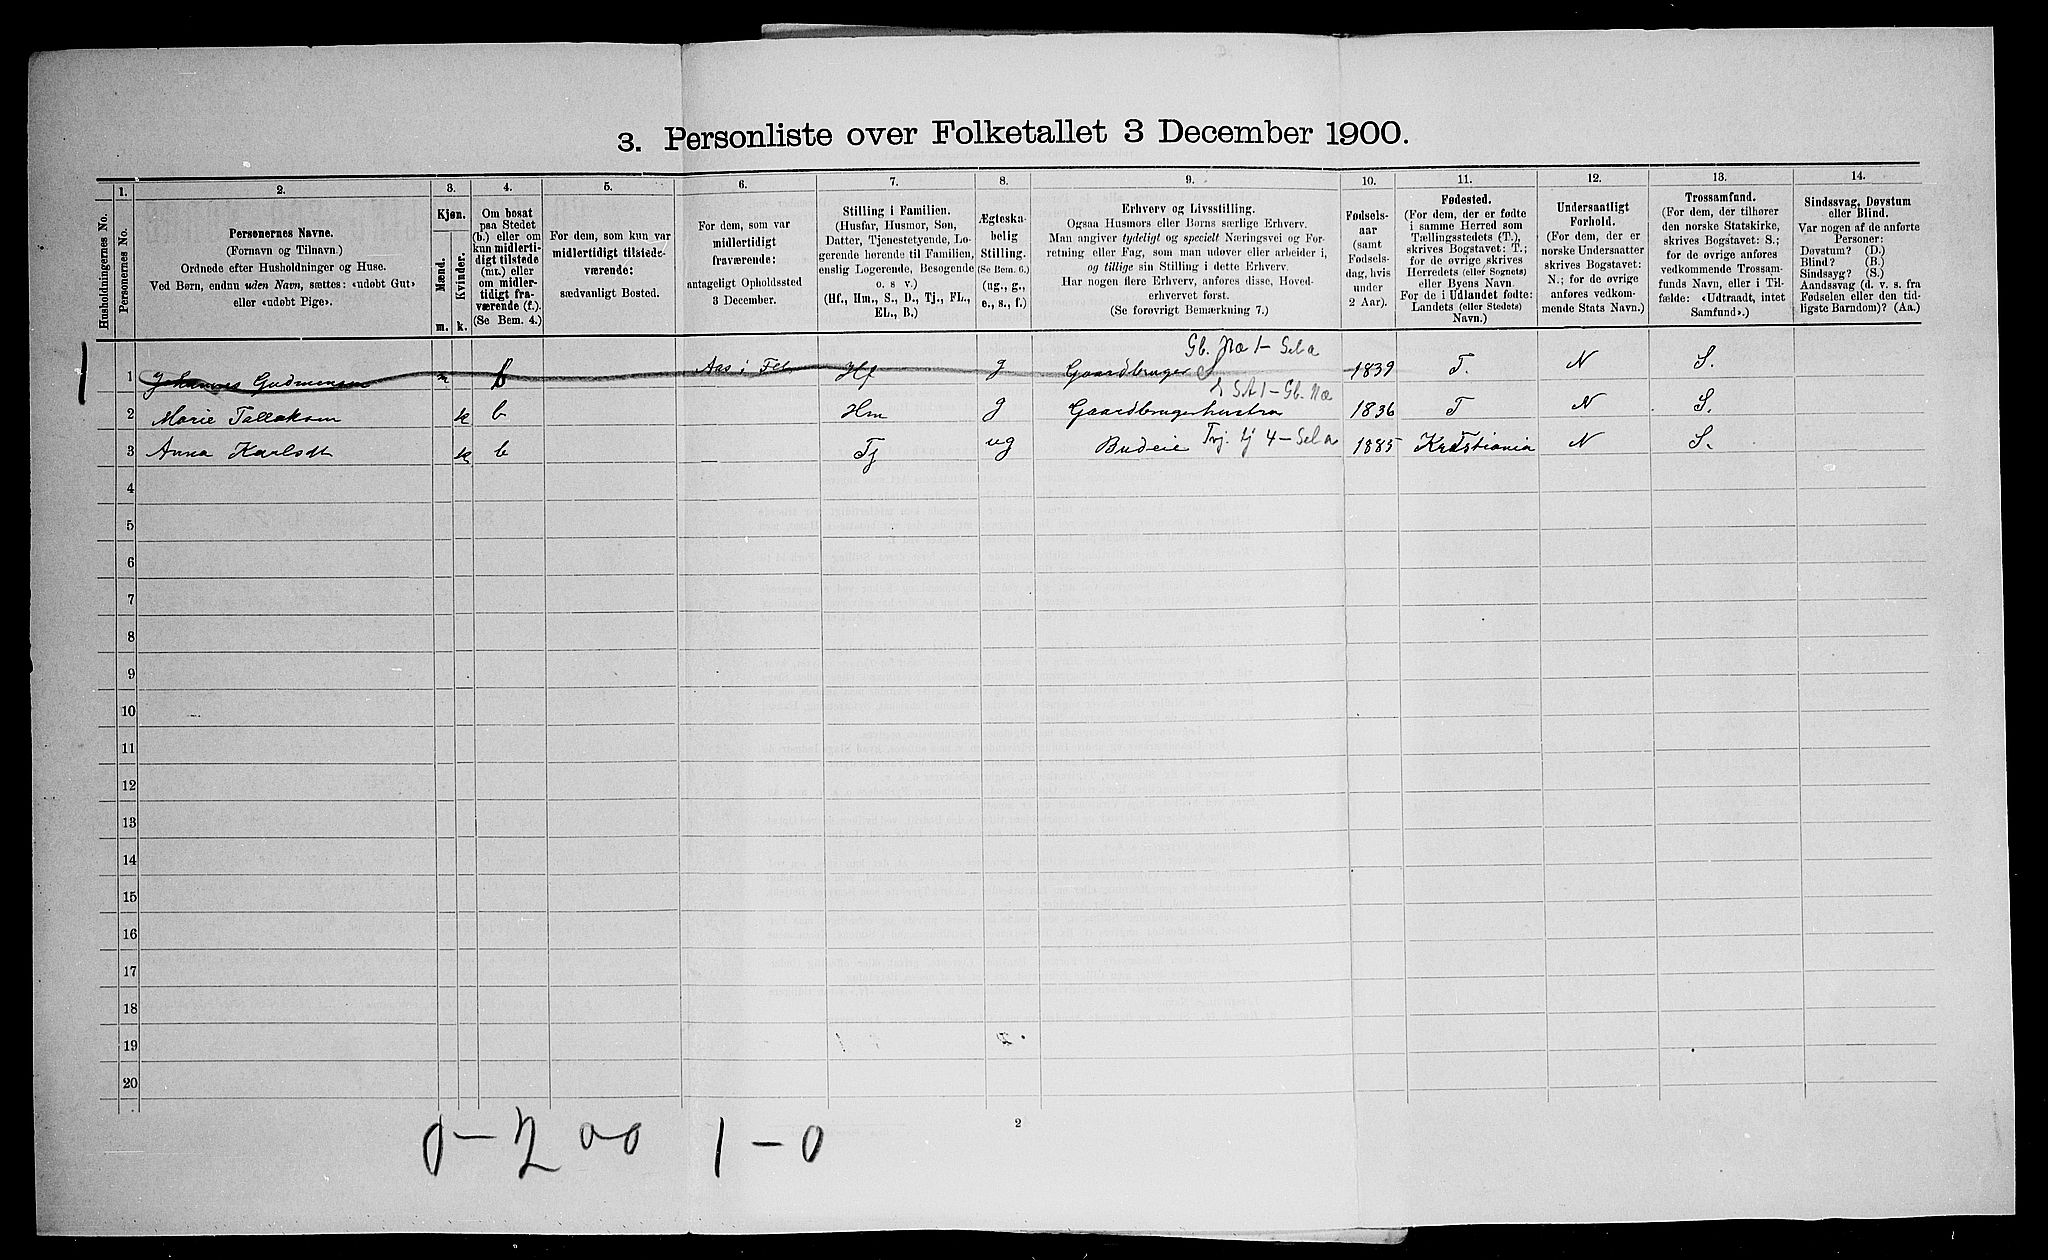 3. Personliste over Folketallet 3 December 1900.
1. 2. 3. 4. 5. 6. 7. 8. 9. 10. 11. 12. 13. 14.
Husholdningernes No.
Personernes No.
Personernes Navne.
(Fornavn og Tilnavn.)
Ordnede efter Husholdninger og Huse.
Ved Børn, endnu uden Navn, sættes: «udøbt Gut»
eller «udøbt Pige».
Kjøn.
Mænd.
Kvinder.
m. k.
Om bosat
paa Stedet
(b.) eller om
kun midlerti-
digt tilstede
(mt.) eller
om midler-
tidigt fra-
værende (f.).
(Se Bem. 4.)
For dem, som kun var
midlertidigt tilstede-
værende:
sædvanligt Bosted.
For dem, som var
midlertidigt
fraværende:
antageligt Opholdssted
3 December.
Stilling i Familien.
(Husfar, Husmor, Søn,
Datter, Tjenestetyende, Lo-
gerende hørende til Familien,
enslig Logerende, Besøgende
o. s v.)
(Hf., Hm., S., D., Tj., FL.,
EL., B.)
Ægteska-
belig
Stilling.
(Se Bem. 6.)
(ug., g.,
e., s., f.)
Erhverv og Livsstilling.
Ogsaa Husmors eller Børns særlige Erhverv.
Man angiver tydeligt og specielt Næringsvei og For-
retning eller Fag, som man udøver eller arbeider i,
og tillige sin Stilling i dette Erhverv.
Har nogen flere Erhverv, anføres disse, Hoved-
erhvervet først.
(Se forøvrigt Bemærkning 7.)
Fødsels-
aar
(samt
Fødsels-
dag, hvis
under
2 Aar).
Fødested.
(For dem, der er fødte
i samme Herred som
Tællingsstedets (T.),
skrives Bogstavet: T.;
for de øvrige skrives
Herredets (eller Sognets)
eller Byens Navn.
For de i Udlandet fødte:
Landets (eller Stedets)
Navn.)
Undersaatligt
Forhold.
(For dem, der er
norske Undersaatter
skrives Bogstavet:
N.; for de øvrige
anføres vedkom-
mende Stats Navn.)
Trossamfund.
(For dem, der tilhører
den norske Statskirke,
skrives Bogstavet: S.;
for de øvrige anføres
vedkommende Trossam-
funds Navn, eller i Til-
fælde: «Udtraadt, intet
Samfund».)
Sindssvag, Døvstum
eller Blind.
Var nogen af de anførte
Personer:
Døvstum? (D.)
Blind? (B.)
Sindssyg? (S.)
Aandssvag (d. v. s. fra
Fødselen eller den tid-
ligste Barndom)? (Aa.)
Gb. Na 1 - Sel a
1 1 Johannes Gudmunsen m Aas i Hf g Gaardbruger 1839 T. N S.
Gb. Na
2 Marie Tallaksen k b Hm g Gaardbrugerhustru 1836 T N S.
3 Anna Karlsdt k b Tj ug Budeie Tvj. tj 4 - Sel a 1885 Kristiania N S.
4
5
6
7
8
9
10
11
12
13
14
15
16
17
18
19
20
0 - 2 00 1 - 0
2